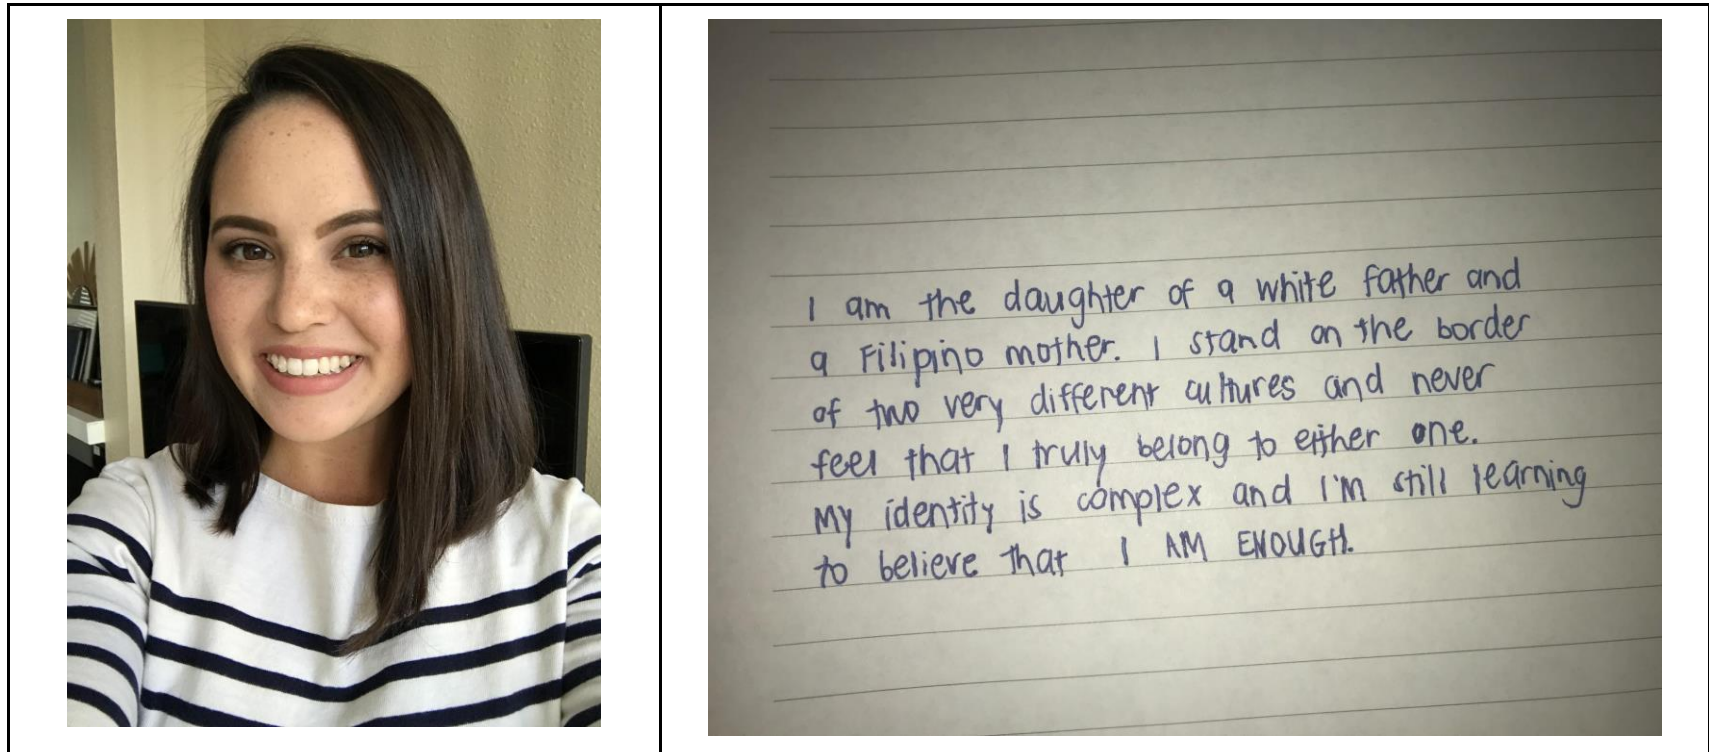 I am the daughter of a white father and
a Filipino mother. I stand on the border
of two very different cultures and never
feel that I truly belong to either one.
My identity is complex and I'm still learning
to believe that I AM ENOUGH.